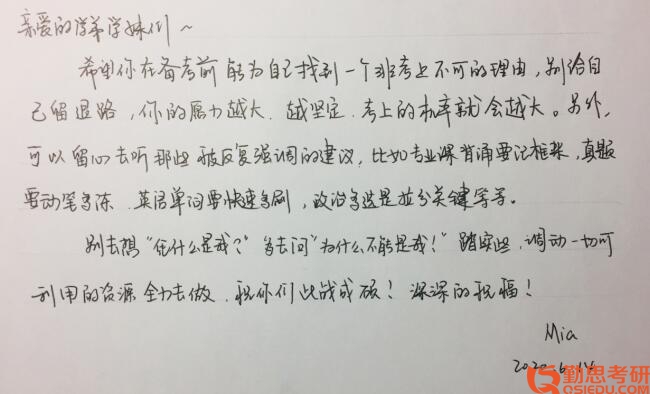 亲爱的学弟学妹们~
希望你在备考前能为自己找到一个非考上不可的理由,别给自
己留退路,你的愿力越大、越坚定、考上的机率就会越大。另外,
可以留心去听那些被反复强调的建议,比如专业课背诵要记框架,真题
要动笔多练、英语单词要快速多刷,政治多选是拉分关键等等。
别去想“凭什么是我?”多去问“为什么不能是我!”踏实些,调动一切可
利用的资源全力去做、祝你们此战成硕!深深的祝福!
Mia
2020.6.14
勤思考研
QSIEDU.COM